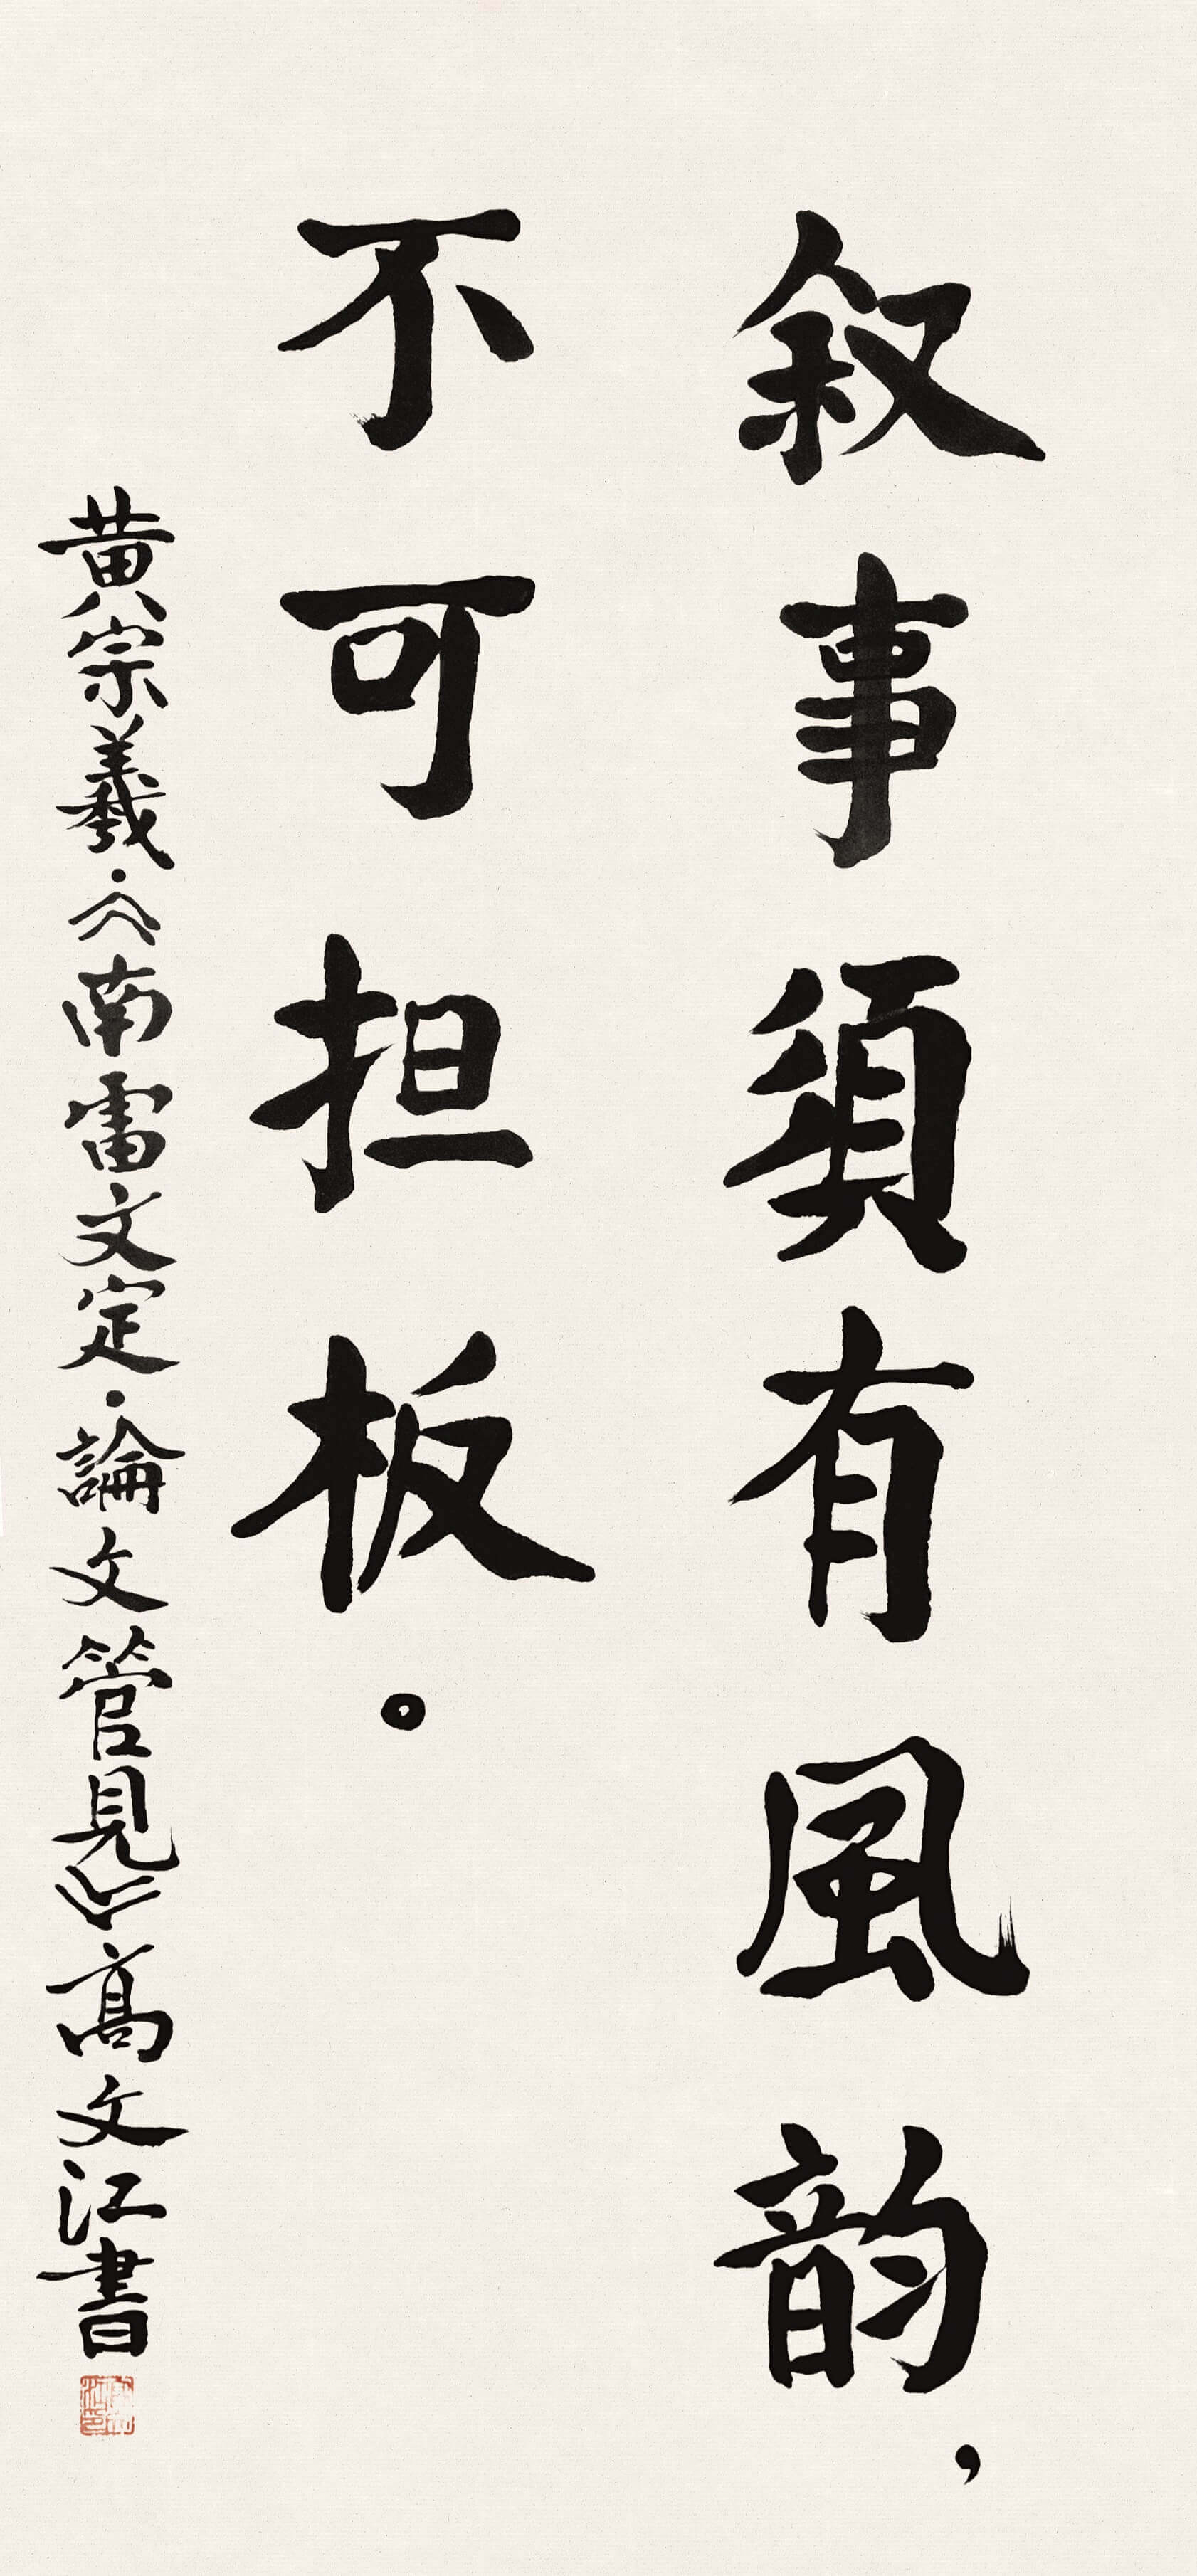 叙事須有風韵，
不可担板。
黄宗羲·《南雷文定·論文管見》高文江書